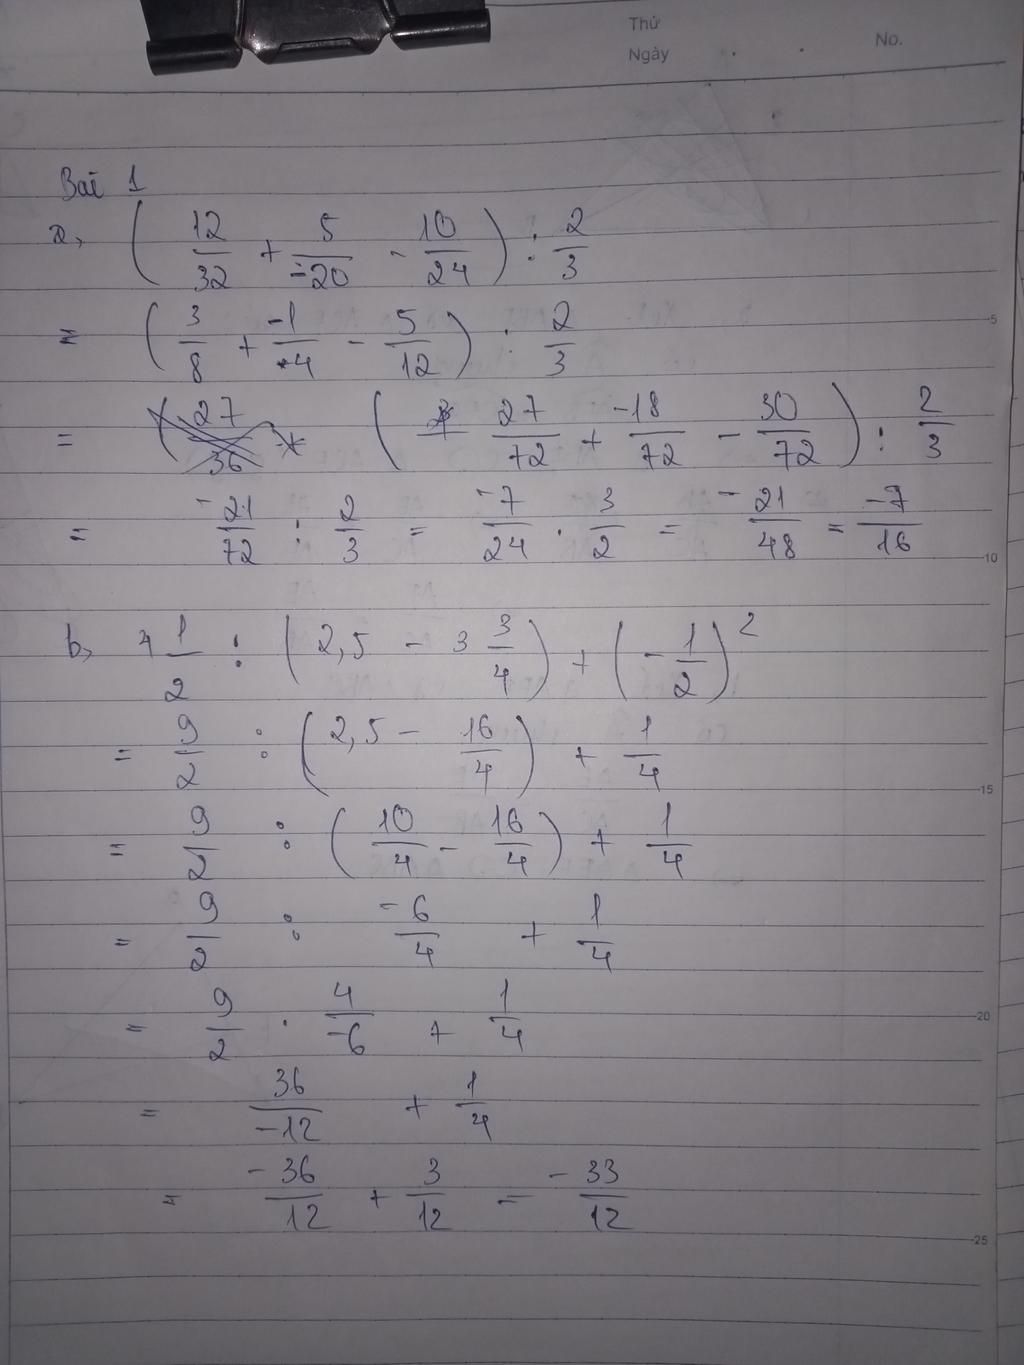 Thứ
Ngày . . No.
Bài 1
a, ( 12/32 + 5/-20 - 10/24 ) : 2/3
= ( 3/8 + -1/4 - 5/12 ) : 2/3
= ( 27/72 + -18/72 - 30/72 ) : 2/3
= -21/72 : 2/3 = -7/24 . 3/2 = -21/48 = -7/16
b, 4 1/2 : ( 2,5 - 3 3/4 ) + ( - 1/2 )²
= 9/2 : ( 2,5 - 16/4 ) + 1/4
= 9/2 : ( 10/4 - 16/4 ) + 1/4
= 9/2 : -6/4 + 1/4
= 9/2 . 4/-6 + 1/4
= 36/-12 + 1/4
= -36/12 + 3/12 = -33/12
5
10
15
20
25